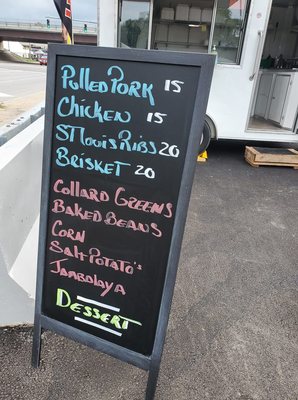 Pulled Pork 15
Chicken 15
St Louis Ribs 20
Brisket 20
Collard Greens
Baked Beans
Corn
Salt Potato's
Jambolaya
Dessert